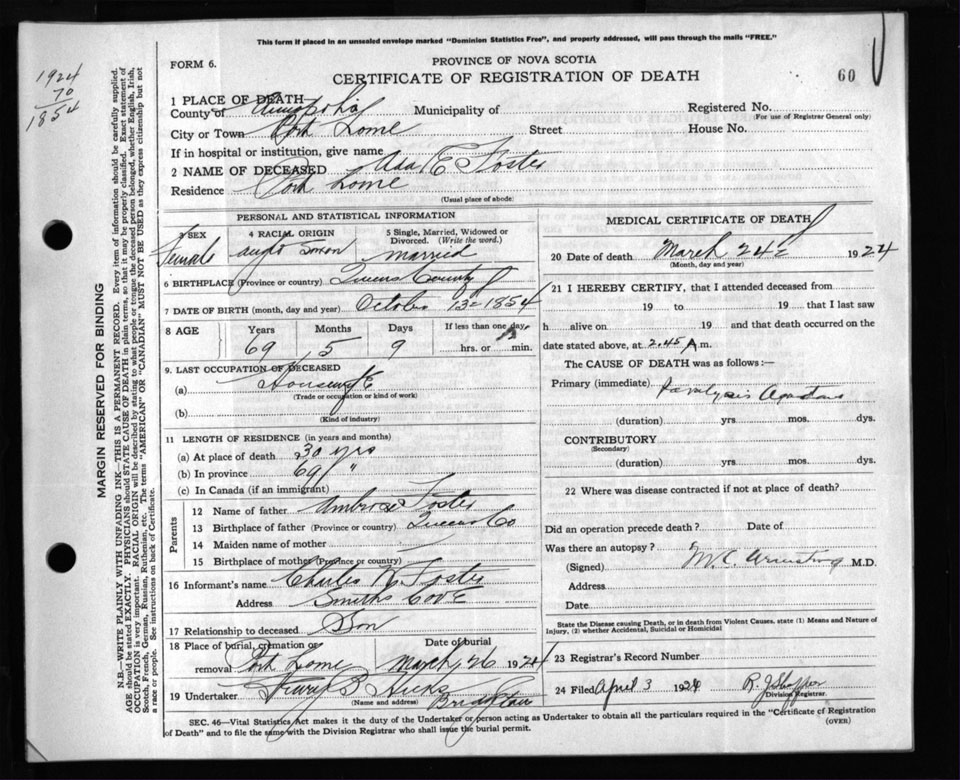 This form if placed in an unsealed envelope marked "Dominion Statistics Free", and properly addressed, will pass through the mails "FREE."
1924
70
1854
FORM 6.
PROVINCE OF NOVA SCOTIA
CERTIFICATE OF REGISTRATION OF DEATH
60
1 PLACE OF DEATH
County of Annapolis Municipality of Registered No.
(For use of Registrar General only)
City or Town Port Lorne Street House No.
If in hospital or institution, give name
2 NAME OF DECEASED Ada E Foster
Residence Port Lorne
(Usual place of abode)
PERSONAL AND STATISTICAL INFORMATION
3 SEX 4 RACIAL ORIGIN 5 Single, Married, Widowed or Divorced. (Write the word.)
Female anglo Saxon married
6 BIRTHPLACE (Province or country) Queens County
7 DATE OF BIRTH (month, day and year) October 13 = 1854
8 AGE Years Months Days If less than one day,
69 5 9 hrs. or min.
9. LAST OCCUPATION OF DECEASED
(a) Housewife
(Trade or occupation or kind of work)
(b)
(Kind of industry)
11 LENGTH OF RESIDENCE (in years and months)
(a) At place of death 30 yrs
(b) In province 69 "
(c) In Canada (if an immigrant)
Parents
12 Name of father Ambrose Foster
13 Birthplace of father (Province or country) Queens Co
14 Maiden name of mother
15 Birthplace of mother (Province or country)
16 Informant's name Charles Foster
Address Smiths Cove
17 Relationship to deceased Son
18 Place of burial, cremation or removal Port Lorne Date of burial March 26 1924
19 Undertaker Hicks
(Name and address) Bridgetown
MEDICAL CERTIFICATE OF DEATH
20 Date of death March 24 = 1924
(Month, day and year)
21 I HEREBY CERTIFY, that I attended deceased from
19 to 19 that I last saw
h alive on 19 and that death occurred on the
date stated above, at 2.45 A m.
The CAUSE OF DEATH was as follows:—
Primary (immediate) Paralysis Agitans
(duration) yrs mos. dys.
CONTRIBUTORY
(Secondary)
(duration) yrs mos. dys.
22 Where was disease contracted if not at place of death?
Did an operation precede death? Date of
Was there an autopsy?
(Signed) M. C. Armstrong M.D.
Address
Date
State the Disease causing Death, or in death from Violent Causes, state (1) Means and Nature of Injury, (2) whether Accidental, Suicidal or Homicidal
23 Registrar's Record Number
24 Filed April 3 1924
Division Registrar.
SEC. 46—Vital Statistics Act makes it the duty of the Undertaker or person acting as Undertaker to obtain all the particulars required in the "Certificate of Registration
of Death" and to file the same with the Division Registrar who shall issue the burial permit. (OVER)
MARGIN RESERVED FOR BINDING
N.B.—WRITE PLAINLY WITH UNFADING INK—THIS IS A PERMANENT RECORD. Every item of information should be carefully supplied.
AGE should be stated EXACTLY. PHYSICIANS should STATE CAUSE OF DEATH in plain terms, so that it may be properly classified. Exact statement of
OCCUPATION is very important. RACIAL ORIGIN will be described by stating to what people or tongue the deceased person belonged, whether English, Irish,
Scotch, French, German, Russian, Ruthenian, etc. The terms "AMERICAN" or "CANADIAN" MUST NOT BE USED as they express citizenship but not
a race or people. See instructions on back of Certificate.